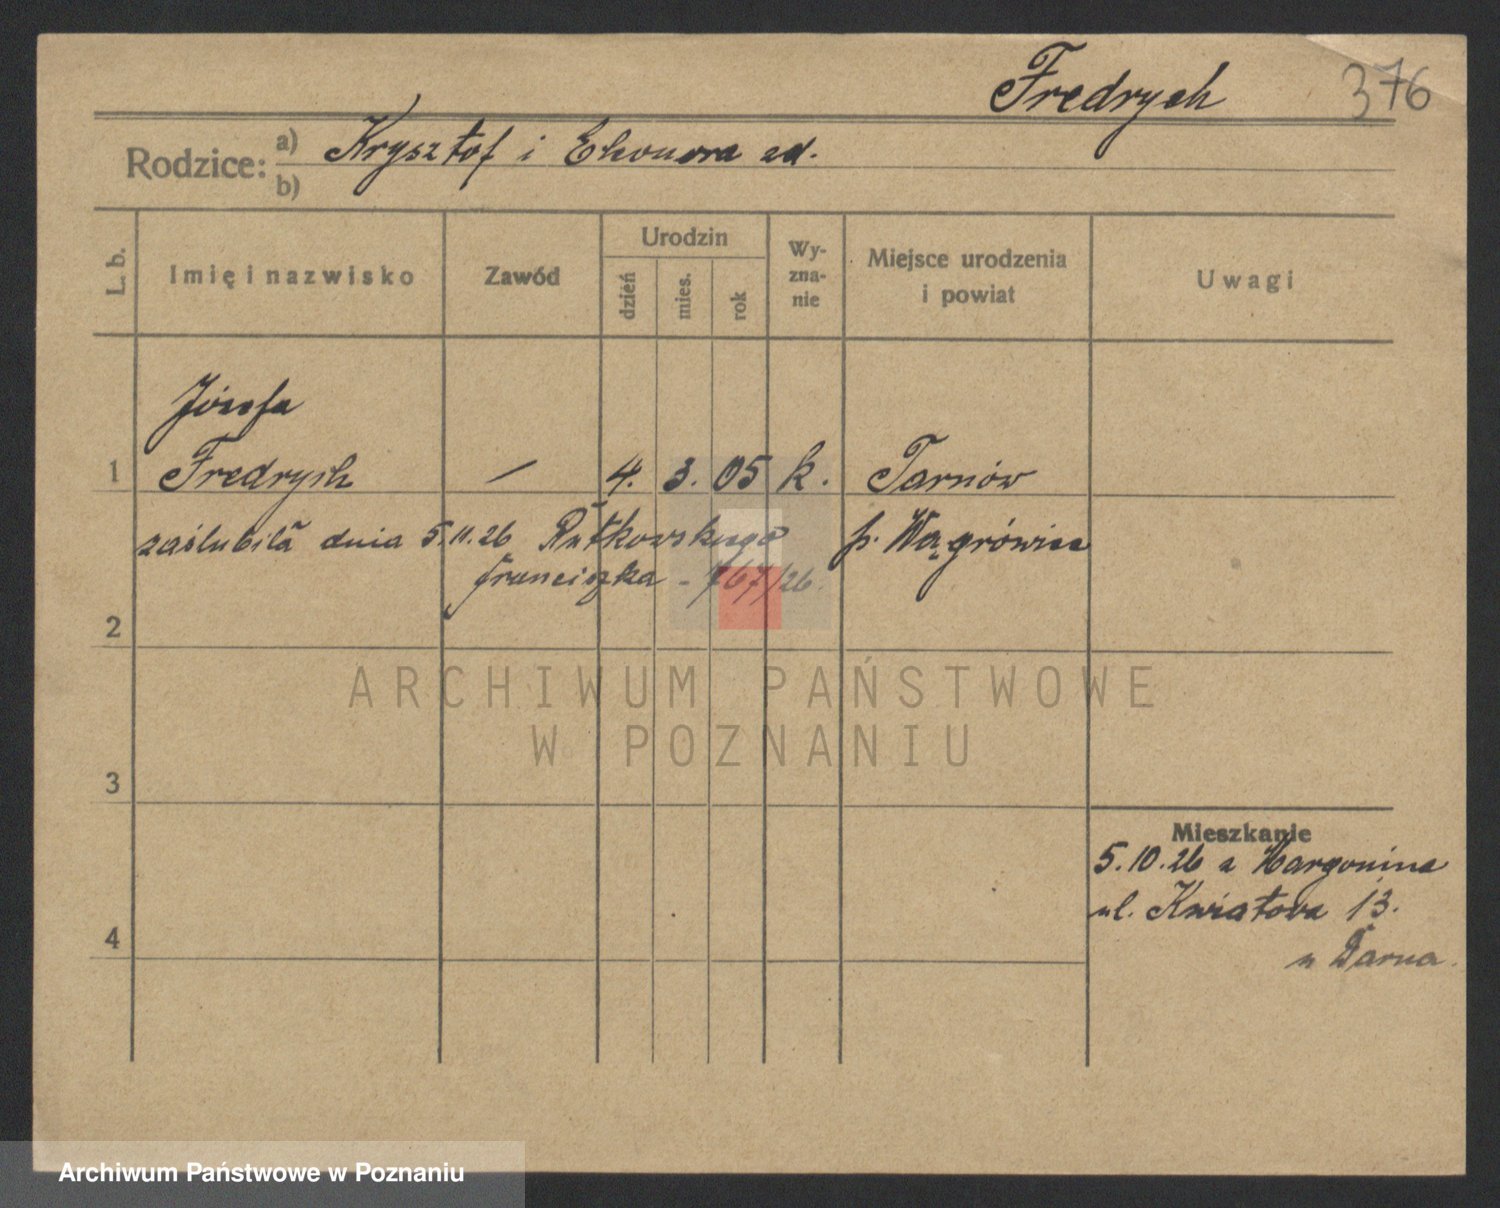 Fredrych 376
Rodzice: a) Krysztof i Eleonora zd.
b)
L. b. Imię i nazwisko Zawód Urodzin dzień mies. rok Wy-zna-nie Miejsce urodzenia i powiat Uwagi
Józefa
1 Fredrych — 4. 3. 05 k. Tarnów
zaślubiła dnia 5.11.26 Rutkowskiego p. Wągrówiec
Franciszka - 767/26.
2
ARCHIWUM PAŃSTWOWE
W POZNANIU
3
Mieszkanie
5.10.26 z Margonina
ul. Kwiatowa 13.
4
Archiwum Państwowe w Poznaniu